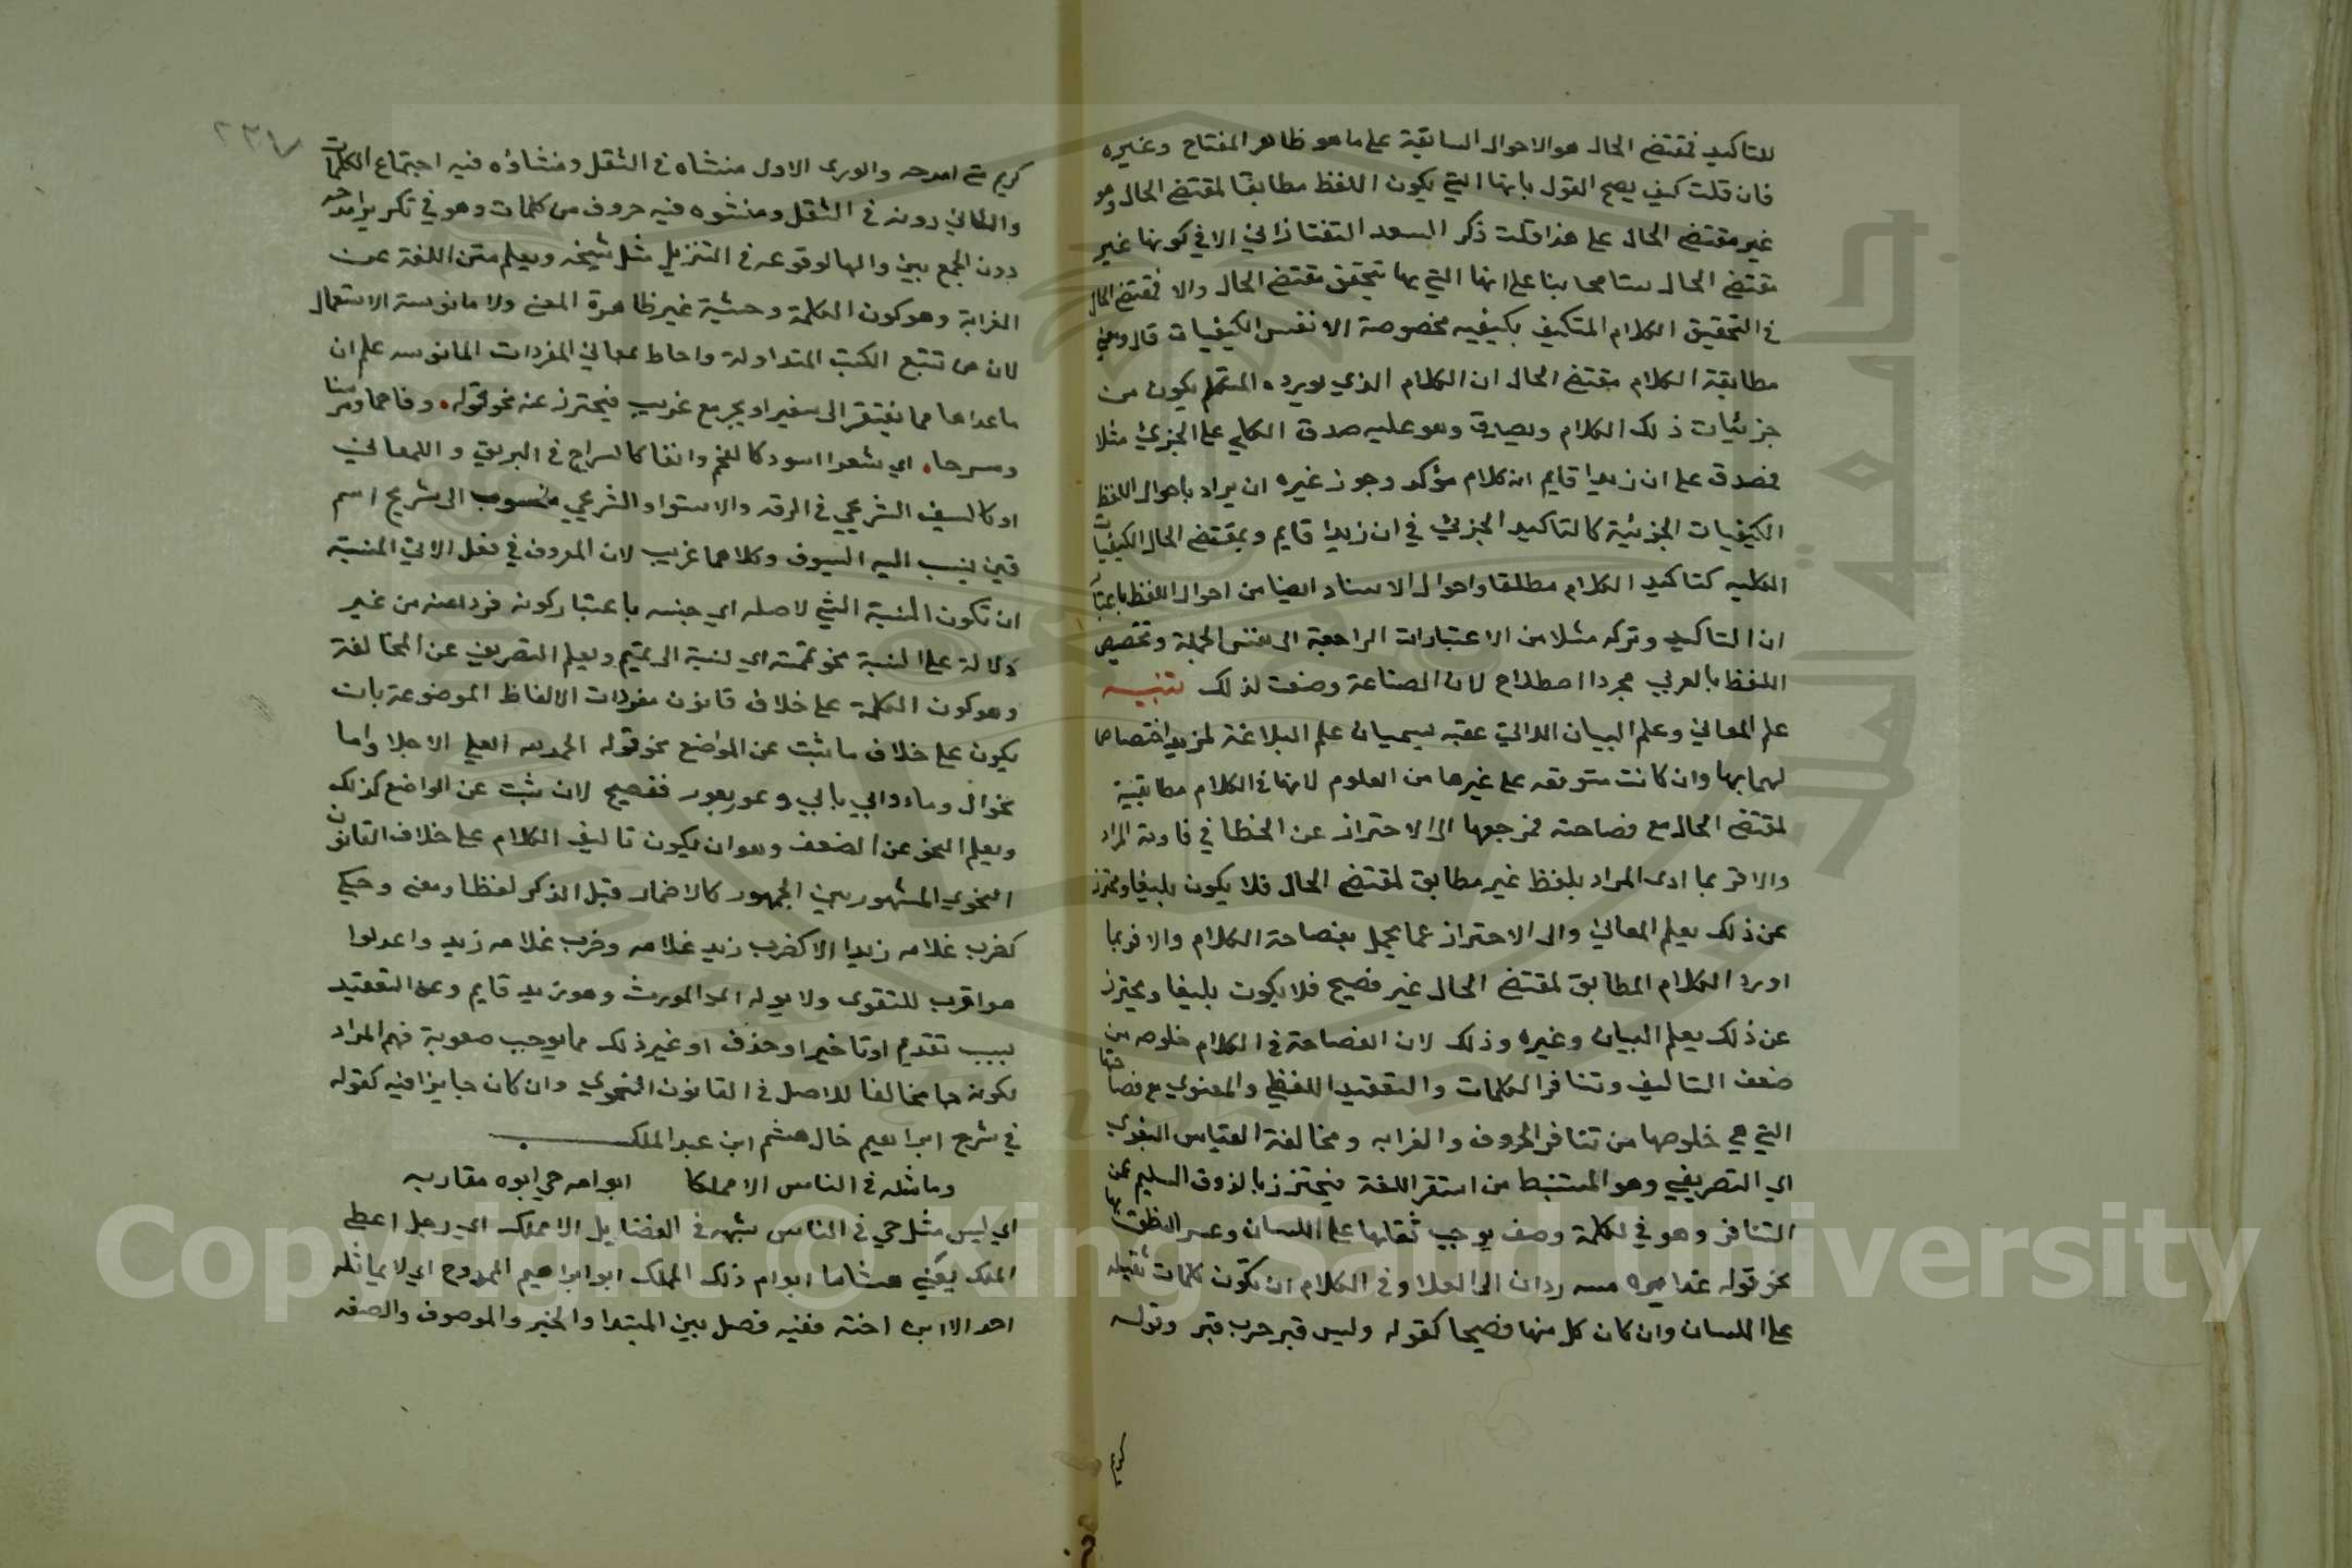 للتاكيد فمقتضى الحال هو الاحوال السابقة على ما هو ظاهر المفتاح وغيره
فان قلت كيف يصح القول بانها التي يكون اللفظ مطابقا لمقتضى الحال وهو
غير مقتضى الحال على هذا قلت ذكر السعد التفتازاني الا في كونها غير
مقتضى الحال تسامحا بنا على انها التي بها يتحقق مقتضى الحال والا فمقتضى الحال
في التحقيق الكلام المتكيف بكيفيه مخصوصة الا نفس الكيفيات قال ومعنى
مطابقة الكلام مقتضى الحال ان الكلام الذي يورده المتكلم يكون من
جزئيات ذلك الكلام ويصدق وهو عليه صدق الكلي على الجزئي مثلا
فصدق على ان زيدا قايم انه كلام مؤكد وجوز غيره ان يراد باحوال اللفظ
الكيفيات الجزئية كالتاكيد الجزئي في ان زيدا قايم وبمقتضى الحال الكيفيات
الكليه كتاكيد الكلام مطلقا واحوال الاسناد ايضا من احوال اللفظ باعتبار
ان التاكيد وتركه مثلا من الاعتبارات الراجعة الى نفس الجملة وتخصيص
اللفظ بالعربي مجرد اصطلاح لان الصناعة وضعت لذلك تنبيه
علم المعاني وعلم البيان الداتي عقبه يسميان علم البلاغة لمزيد اختصاصا
لهما بها وان كانت متوقفه على غيرها من العلوم لانها في الكلام مطابقية
لمقتضى الحال مع فصاحته فمرجعها الى الاحتراز عن الخطا في تادية المراد
والا فربما ادى المراد بلفظ غير مطابق لمقتضى الحال فلا يكون بليغا ويحترز
عن ذلك بعلم المعاني والى الاحتراز عما يخل بفصاحة الكلام والا فربما
اورد الكلام المطابق لمقتضى الحال غير فصيح فلا يكون بليغا ويحترز
عن ذلك بعلم البيان وغيره وذلك لان الفصاحة في الكلام خلوصه من
ضعف التاليف وتنافر الكلمات والتعقيد اللفظي والمعنوي مع فصاحتها
التي هي خلوصها من تنافر الحروف والغرابه ومخالفة القياس اللغوي
اي التصريفي وهو المستنبط من استقرا اللغة فيحترز بالذوق السليم عن
التنافر وهو في الكلمة وصف يوجب ثقلها على اللسان وعسر النطق بها
نحو قوله غدايره مستشزرات الى العلا وفي الكلام ان تكون كلمات ثقيله
على اللسان وان كان كل منها فصيحا كقوله وليس قبر حرب قبر وقوله
كريم
كريم متى امدحه والورى الاول منشاه في الثقل ومنشاؤه فيه اجتماع الكلمات
والثاني دونه في الثقل ومنشوه فيه حروف من كلمات وهو في تكرير امدحه
دون الجمع بين والها لوقوعه في التنزيل مثل سبحه وبعلم متن اللغة عن
الغرابة وهو كون الكلمة وحشية غير ظاهرة المعنى ولا مانوسة الاستعمال
لان من تتبع الكتب المتداولة واحاط بمعاني المفردات المانوسه علم ان
ما عداها مما يفتقر الى تنقير او تخريج غريب فيحترز عنه نحو قوله وفاحما ومرسنا
ومسرجا اي شعرا اسود كالفحم وانفا كالسراج في البريق واللمعان
او كالسيف السريجي في الدقه والاستوا والسريجي منسوب الى سريج اسم
قين ينسب اليه السيوف وكلاهما غريب لان المعروف في فعل الاتي النسبة
ان تكون النسبة الشي لاصله اي جنسه باعتبار كونه فردا منه من غير
دلالة على النسبة نحو تممته اي نسبة الى تميم وبعلم التصريف عن المخالفة
وهو كون الكلمة على خلاف قانون مفردات الالفاظ الموضوعة بان
يكون على خلاف ما ثبت عن الواضع نحو قوله الحمد لله العلي الاجلل واما
نحو ال وماء وابي يابي وعور يعور ففصيح لان ثبت عن الواضع كذلك
وبعلم النحو عن الضعف وهو ان يكون تاليف الكلام على خلاف القانون
النحوي المشهور بين الجمهور كالاضمار قبل الذكر لفظا ومعنى وحكما
كضرب غلامه زيدا الا كضرب زيد غلامه وضرب غلامه زيد واعدلوا
هو اقرب للتقوى ولا بويه المورث وهو زيد قايم وعن التعقيد
بسبب تقديم او تاخير او حذف او غير ذلك مما يوجب صعوبة فهم المراد
لكونه مخالفا للاصل في القانون النحوي وان كان جايزا فيه كقوله
في شرح ابراهيم خال هشام ابن عبد الملك
وما مثله في الناس الا مملكا ابو امه حي ابوه يقاربه
اي ليس مثل حي في الناس يشبهه في الفضايل الا مملك اي رجل اعطى
الملك يعني هشاما ابو ام ذلك المملك ابو ابراهيم الممدوح اي لا يماثله
احد الا ابن اخته ففيه فصل بين المبتدا والخبر والموصوف والصفه
Copyright © King Saud University